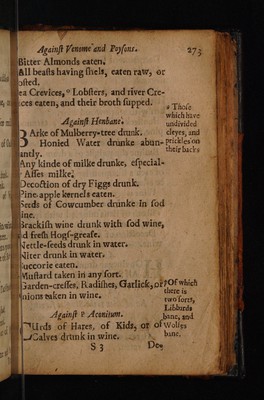 Against Venome and Poysons. 273
Bitter Almonds eaten.
All beasts having shels, eaten raw, or
osted.
ea Crevices,* Lobsters, and river Cre-
ices eaten, and their broth supped.
* Those
which have
undivided
cleyes, and
prickles on
their backs
Against Henbane.
BArke of Mulberry-tree drunk.
Honied Water drunke abun-
antly.
Any kinde of milke drunke, especial-
Asses milke.
Decoction of dry Figgs drunk.
Pine-apple kernels eaten.
Seeds of Cowcumber drunke in sod
ine.
Brackish wine drunk with sod wine,
d fresh Hogs-grease.
Nettle-seeds drunk in water.
Niter drunk in water.
Succorie eaten.
Mustard taken in any sort.
Garden-cresses, Radishes, Garlick, or
nions taken in wine.
Of which
there is
two sorts,
Libbards
bane, and
Wolfes
bane.
Against Aconitum.
CUrds of Hares, of Kids, or of
Calves drunk in wine.
S 3 De-